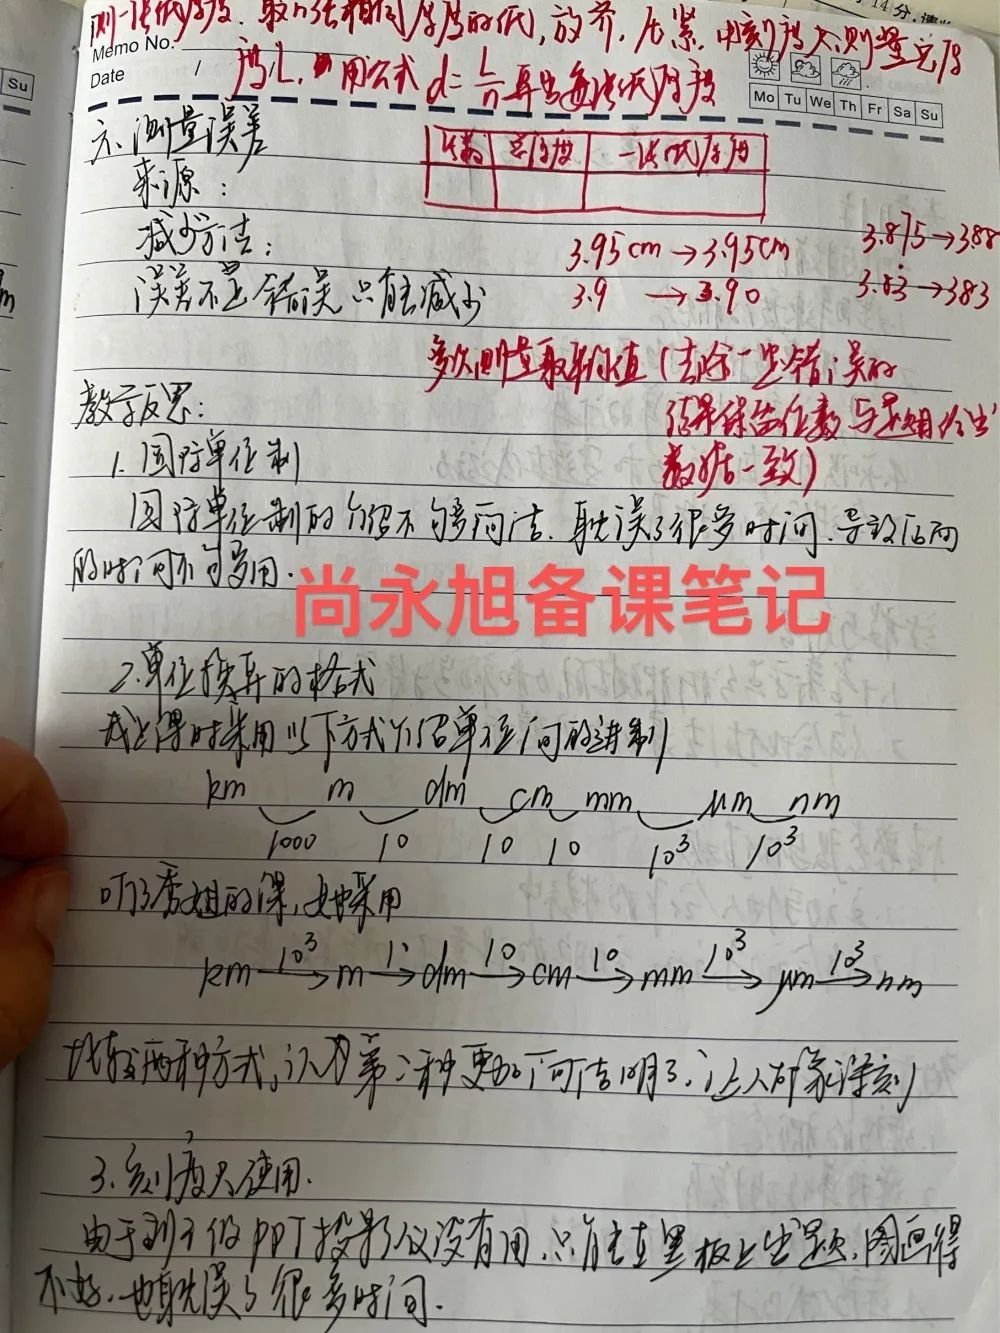 测一张纸厚度. 取n张相同厚度的纸, 放齐, 压紧, 用刻度尺测量总厚
Memo No.
Date / /
Mo Tu We Th Fr Sa Su
Su
度L, 用公式 d=L/n 算出每张纸厚度
六、测量误差
张数 总厚度 一张纸厚度
来源:
减少方法:
3.95cm→3.95cm
3.875→388
误差不是错误 只能减少
3.9 →3.90
3.83→383
多次测量取平均值(去除一些错误的
结果保留位数与题目给出
数据一致)
教学反思:
1. 国际单位制
国际单位制的介绍不够简洁. 耽误了很多时间. 导致后面
的时间不够用.
尚永旭备课笔记
2. 单位换算的格式
我上课时采用以下方式介绍单位间的进制
km m dm cm mm μm nm
1000 10 10 10 10³ 10³
听了秀姐的课, 她采用
km 10³→ m 10→ dm 10→ cm 10→ mm 10³→ μm 10³→ nm
比较两种方式, 认为第二种更加简洁明了. 让人印象深刻
3. 刻度尺使用.
由于到了做PPT投影仪没有用. 只能在黑板上出题, 图画得
不好. 也耽误了很多时间.